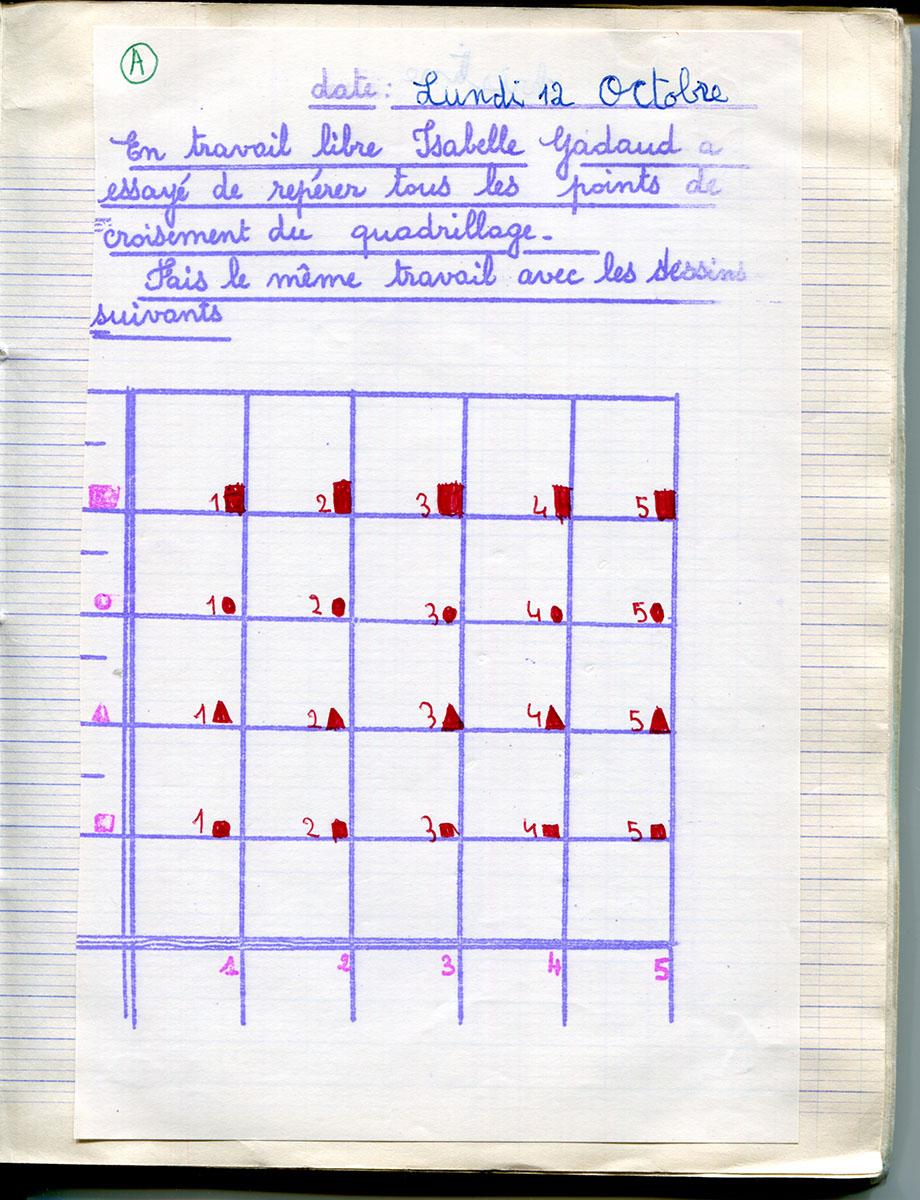 A
date: Lundi 12 Octobre
En travail libre Isabelle Gadaud a
essayé de repérer tous les points de
croisement du quadrillage.
Fais le même travail avec les dessins
suivants
1 2 3 4 5
1 2 3 4 5
1 2 3 4 5
1 2 3 4 5
1 2 3 4 5